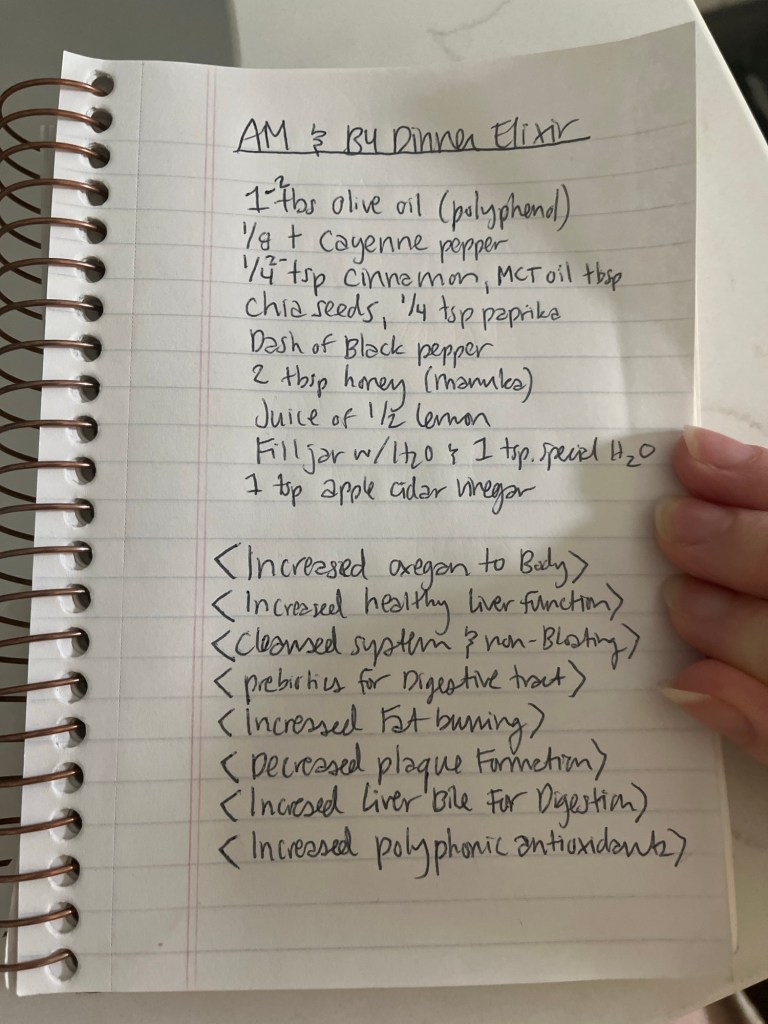 AM & B4 Dinner Elixir
1-2 tbs olive oil (polyphenol)
1/8 t cayenne pepper
1/4-2 tsp cinnamon, MCT oil tbsp
chia seeds, 1/4 tsp paprika
Dash of Black pepper
2 tbsp honey (manuka)
Juice of 1/2 lemon
Fill jar w/ H2O & 1 tsp. special H2O
1 tsp apple cidar vinegar
<Increased oxegan to Body>
<Increased healthy liver function>
<Cleansed system & non-Bloating>
<prebiotics for Digestive tract>
<Increased Fat burning>
<Decreased plaque Formation>
<Incresed Liver Bile For Digestion>
<Increased polyphonic antioxidants>